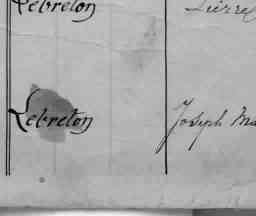 Lebreton Pierre
Lebreton Joseph Ma